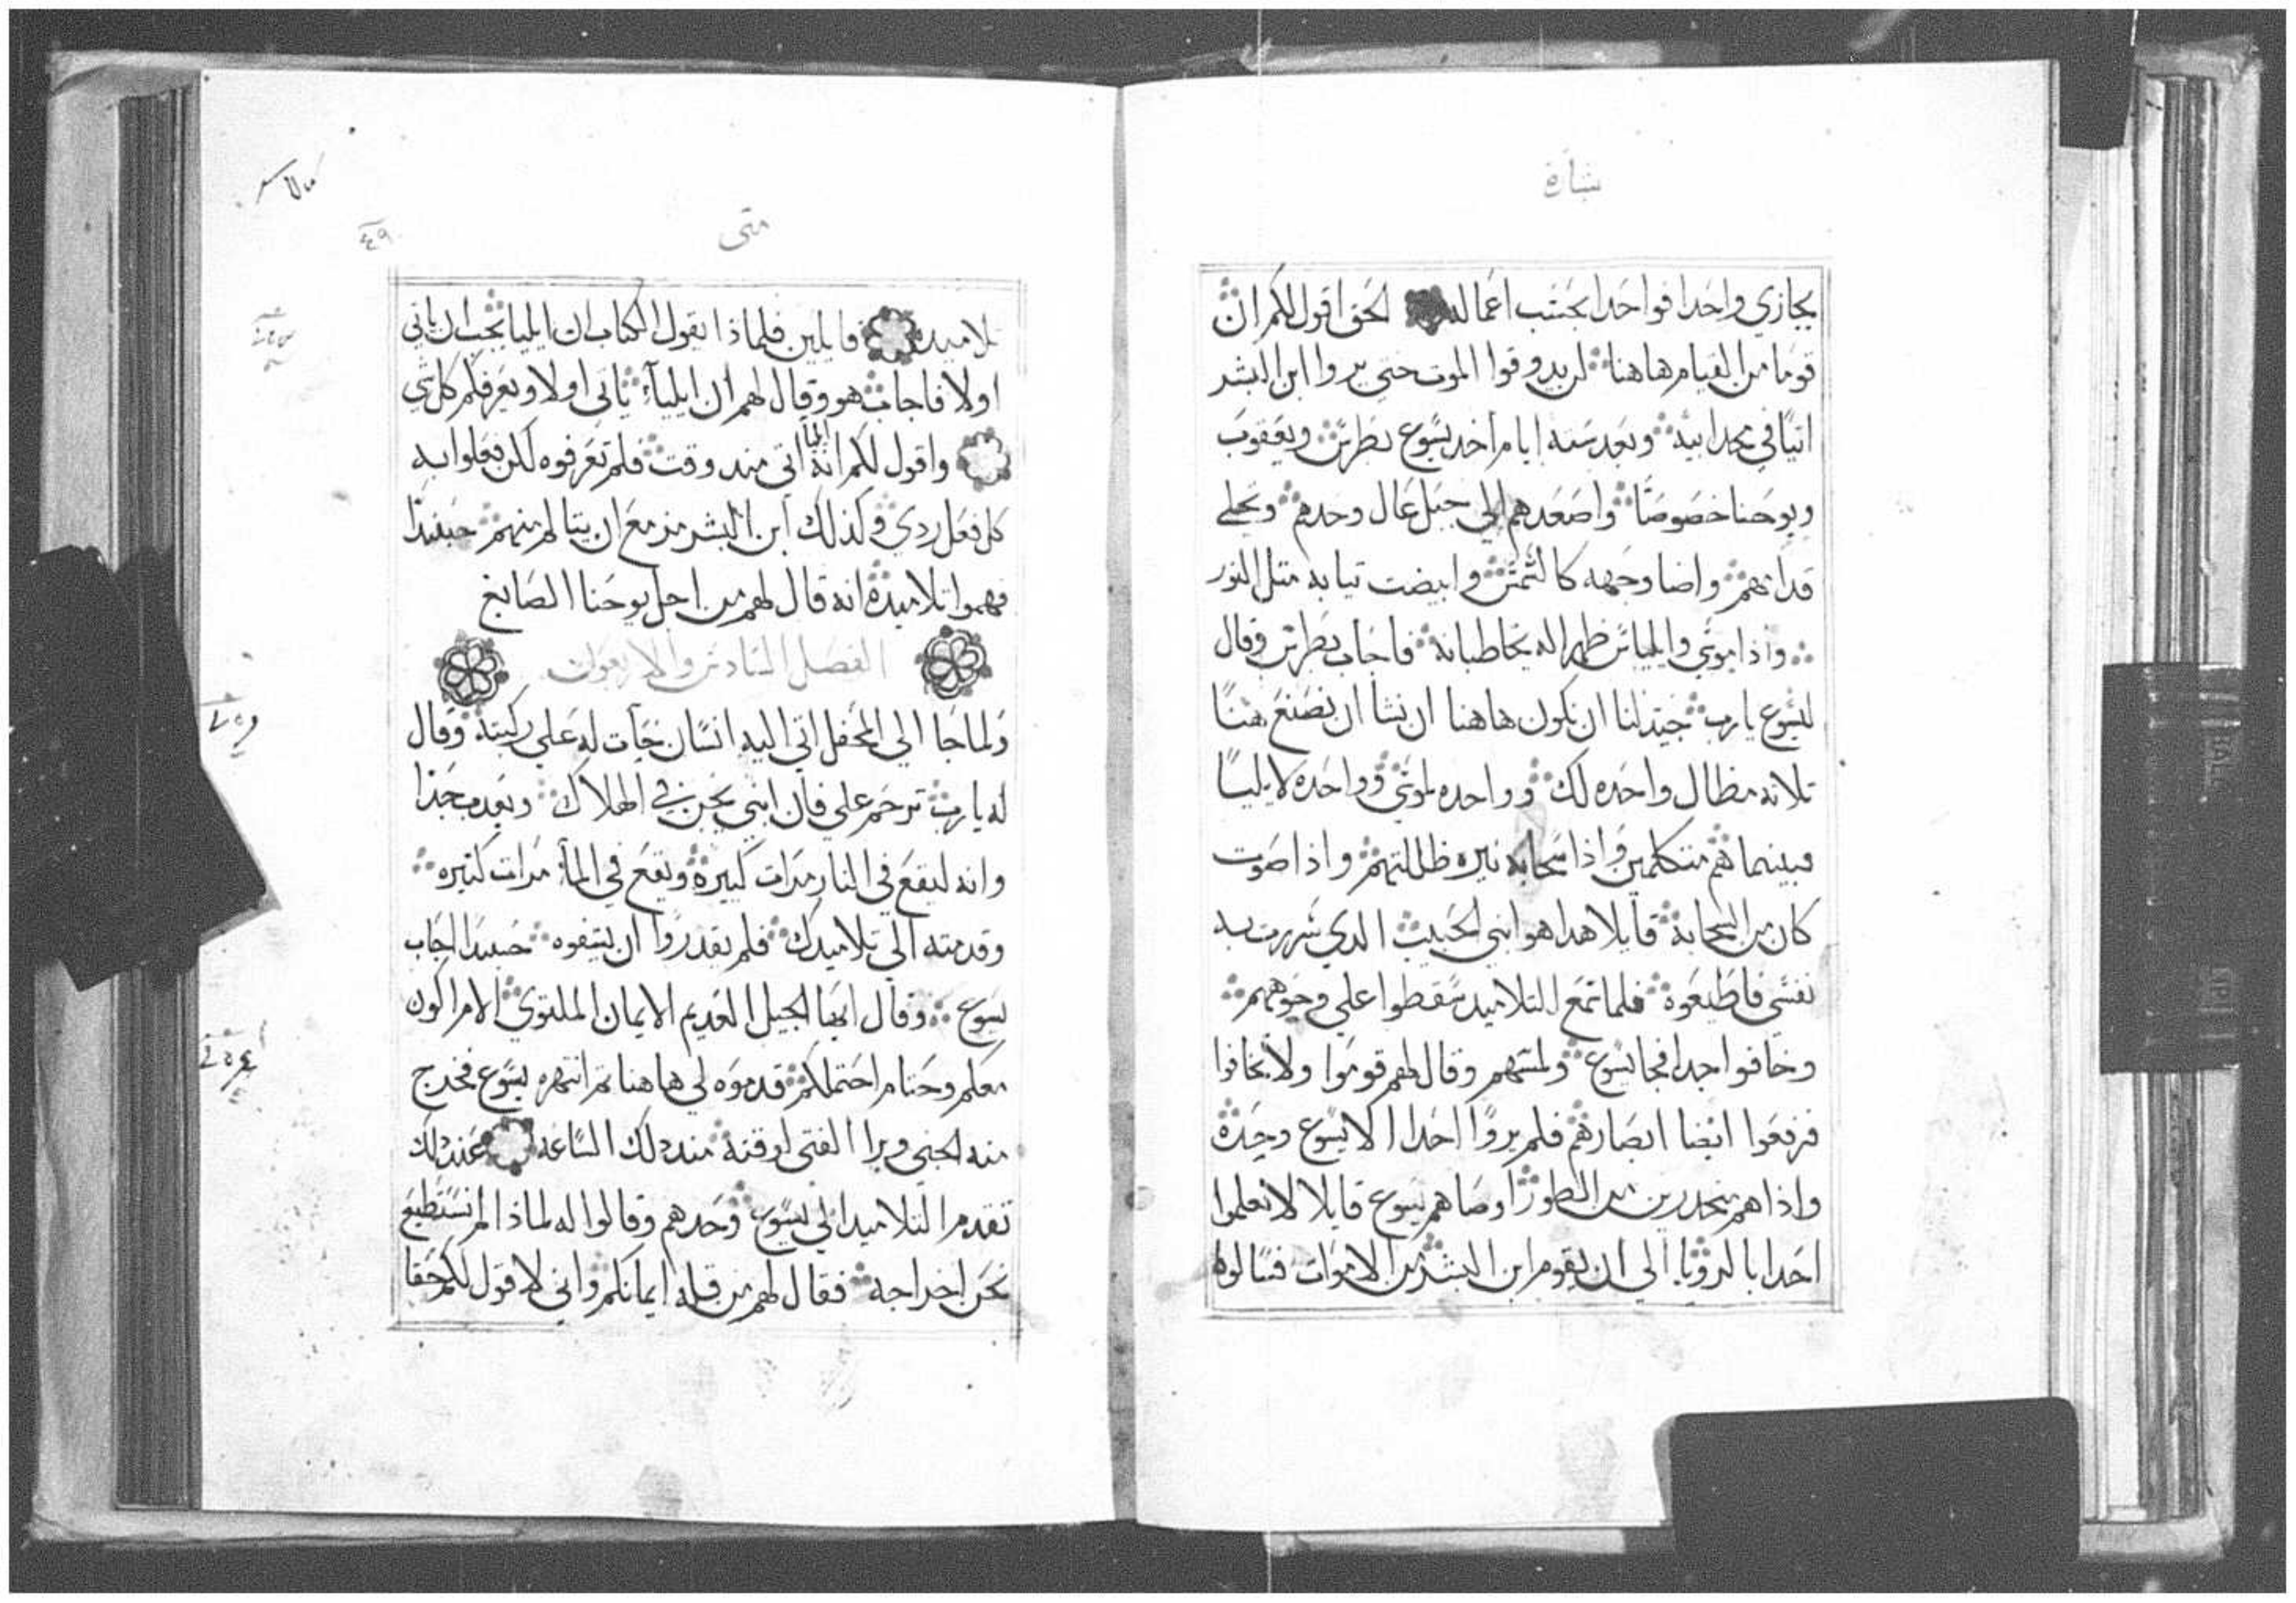 بشارة
يجازي واحدا فواحدا بحسب اعماله الحق اقول لكم ان
قوما من القيام هاهنا لن يدوقوا الموت حتي يروا ابن البشر
اتيا في مجد ابيه وبعد سته ايام اخد يسوع بطرس ويعقوب
ويوحنا خصوصا واصعدهم الي جبل عال وحدهم وتجلي
قدامهم واضا وجهه كالشمس وابيضت تيابه متل النور
واذا موسي وايلياس ظهرا له يخاطبانه فاجاب بطرس وقال
ليسوع يارب جيد لنا ان نكون هاهنا ان نشا ان نصنع هنا
تلاته مظال واحده لك وواحده لموسي وواحده لايليا
فبينما هم متكلمين واذا سحابه نيره ظللتهم واذا صوت
كان من السحابة قايلا هدا هو ابني الحبيب الدي سررت به
نفسي فاطيعوه فلما سمع التلاميد سقطوا علي وجوههم
وخافوا جدا فجا يسوع ولمسهم وقال لهم قوموا ولا تخافوا
فرفعوا ايضا ابصارهم فلم يروا احدا الا يسوع وحده
واذا هم منحدرين من الطور اوصاهم يسوع قايلا لا تعلموا
احدا بالرويا الي ان يقوم ابن البشر من الاموات فسالوه
متى
٤٩
تلاميده قايلين فلماذا يقول الكتاب ان ايليا يجب ان ياتي
اولا فاجاب هو وقال لهم ان ايلياء ياتي اولا ويعرفكم كل شي
واقول لكم انه ايليا اتي مند وقت فلم تعرفوه لكن فعلوا به
كل فعل ردي وكذلك ابن البشر مزمع ان يتالم منهم حينيذا
فهموا تلاميده انه قال لهم من اجل يوحنا الصابغ
الفصل السادس والاربعون
ولما جا الي المحفل اتي اليه انسان جات له علي ركبته وقال
له يارب ترحم علي فان ابني يجن في الهلاك وبعدب جدا
وانه ليقع في النار مرات كبيرة ويقع في الماء مرات كتيره
وقدمته الي تلاميدك فلم يقدروا ان يشفوه حينيدا اجاب
يسوع وقال ايها الجيل العديم الايمان الملتوي الام اكون
معكم وحتام احتملكم قدموه لي هاهنا تم انتهره يسوع فخرج
منه الجني وبرا الفتي لوقته مند دلك الساعه عند دلك
تقدم التلاميد الي يسوع وحدهم وقالوا له لماذا لم نستطيع
نحن اخراجه فقال لهم من قله ايمانكم واني لاقول لكم حقا